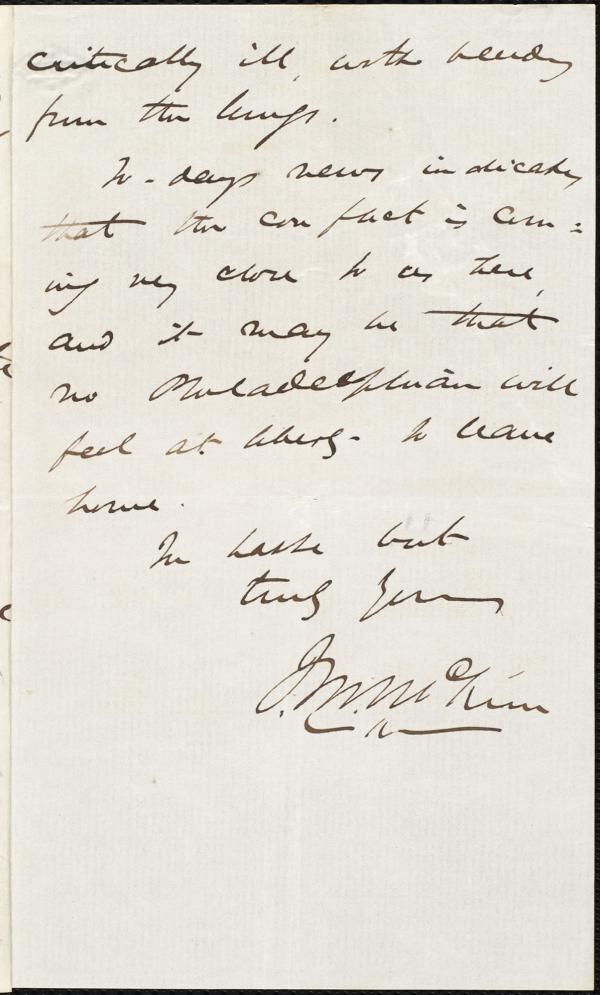 critically ill, with bleeding
from the lungs.
To-days news indicates
that the conflict is com=
ing very close to us here,
and it may be that
no Philadelphian will
feel at liberty to leave
home.
In haste but
truly Yours
J. M. McKim